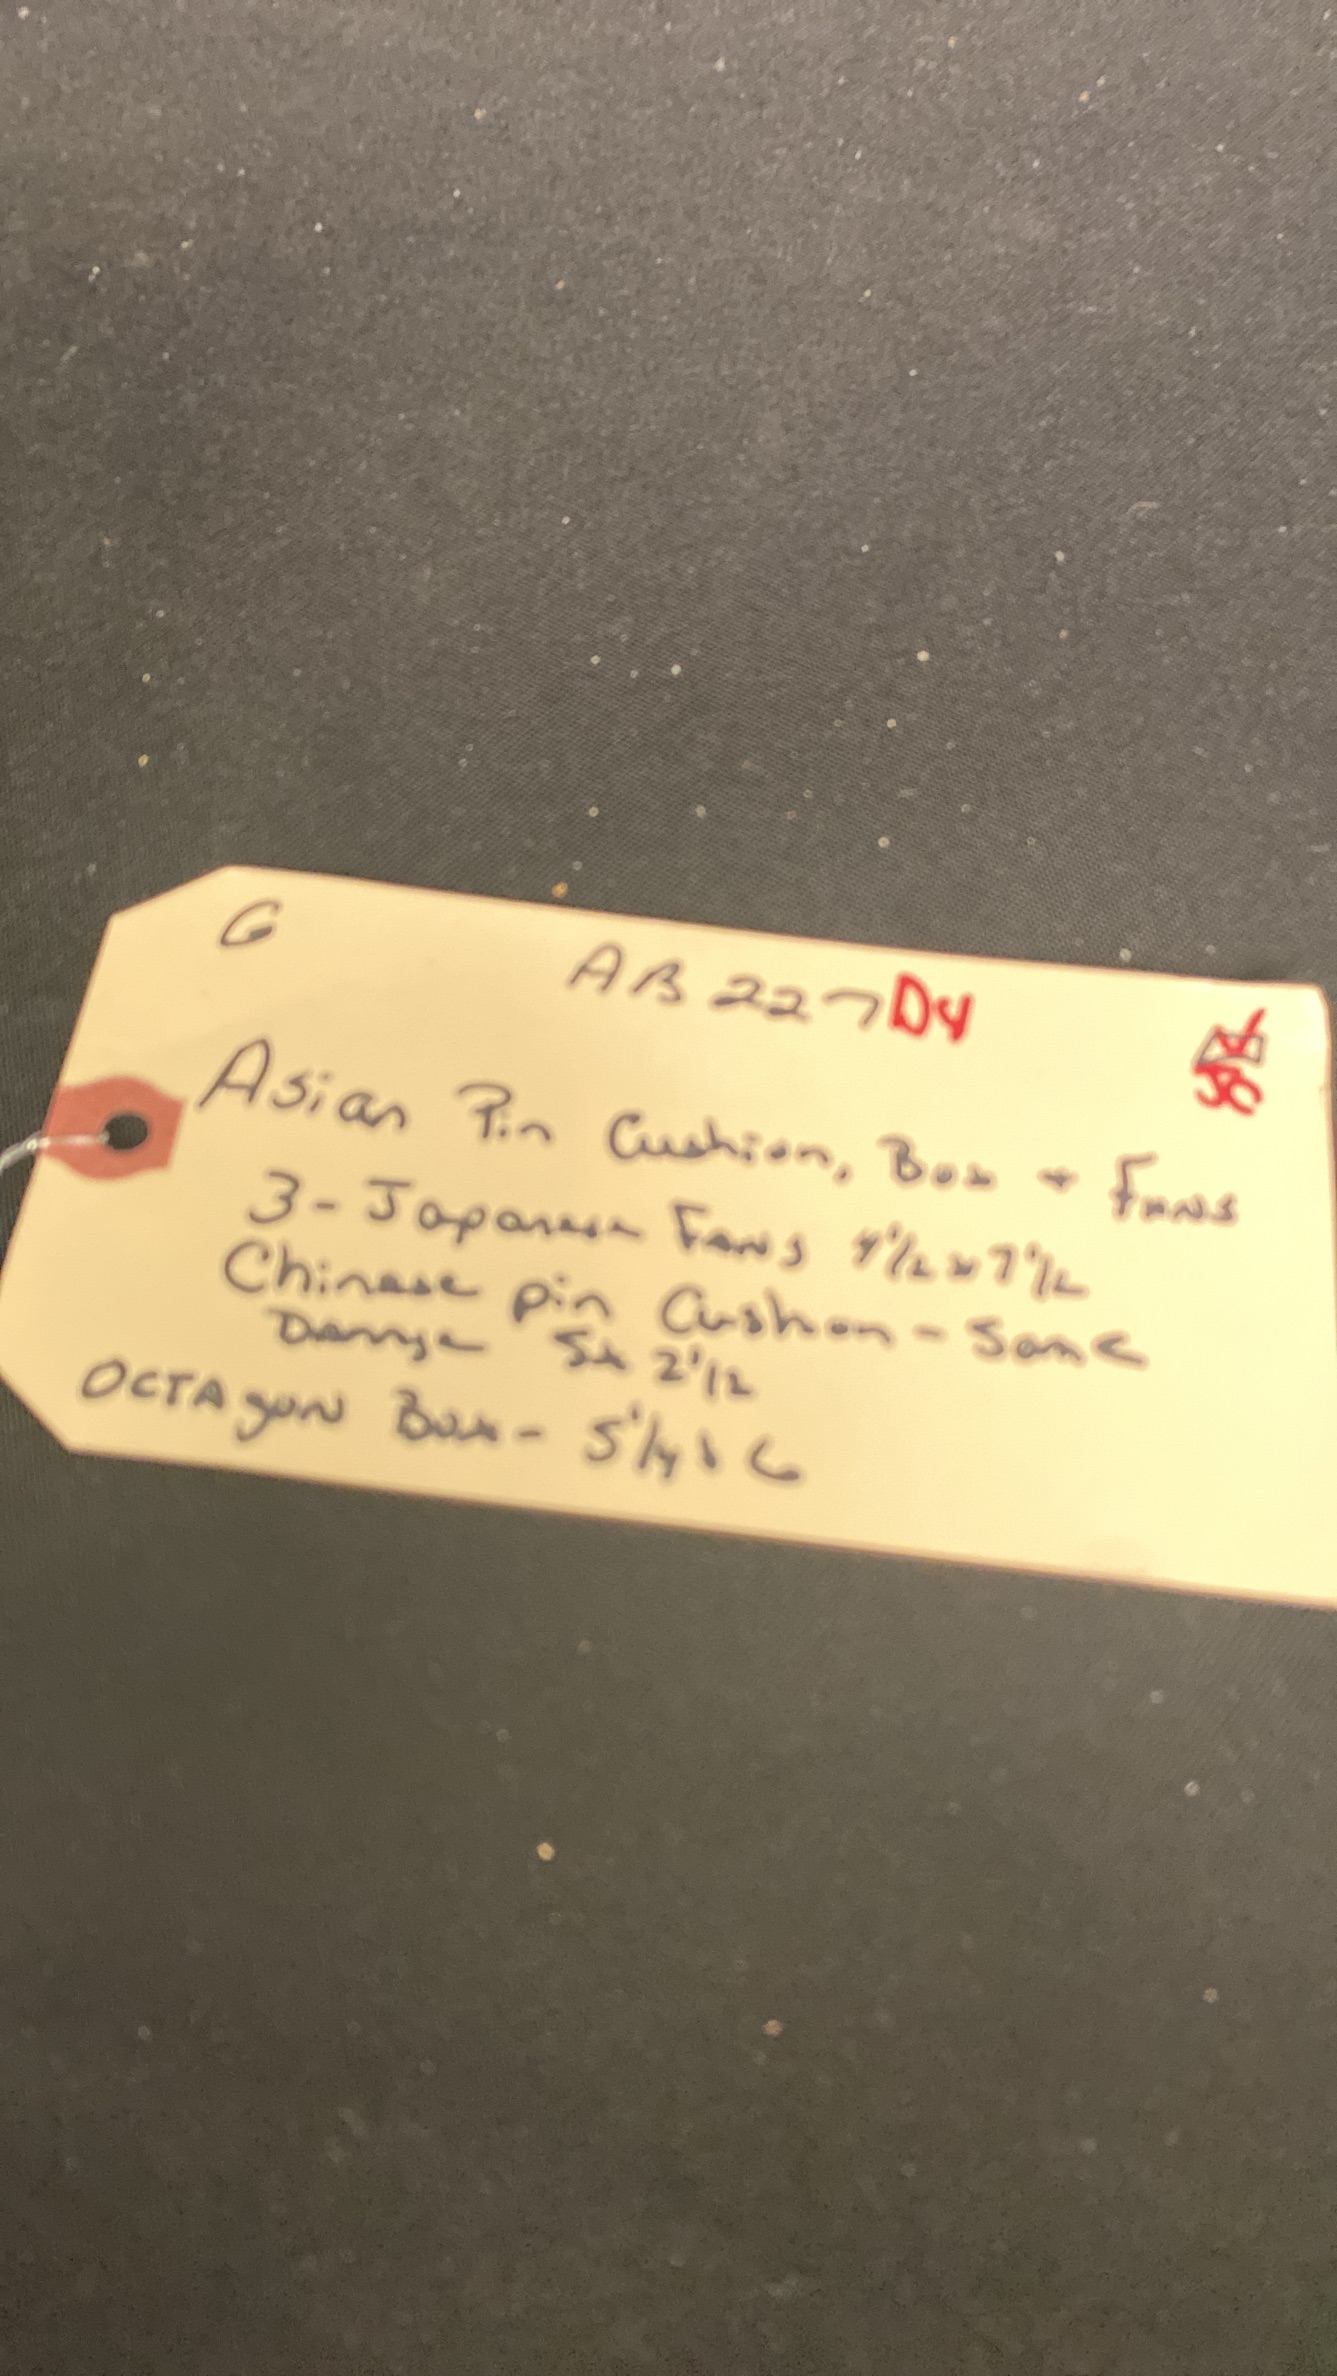 G
AB 227 D4
Asian Pin Cushion, Box + Fans
3 - Japanese Fans 9 1/2 x 7 1/2
Chinese pin Cushion - Some
Damage 5x 2 1/2
OCTAgon Box - 5 1/4 x 6